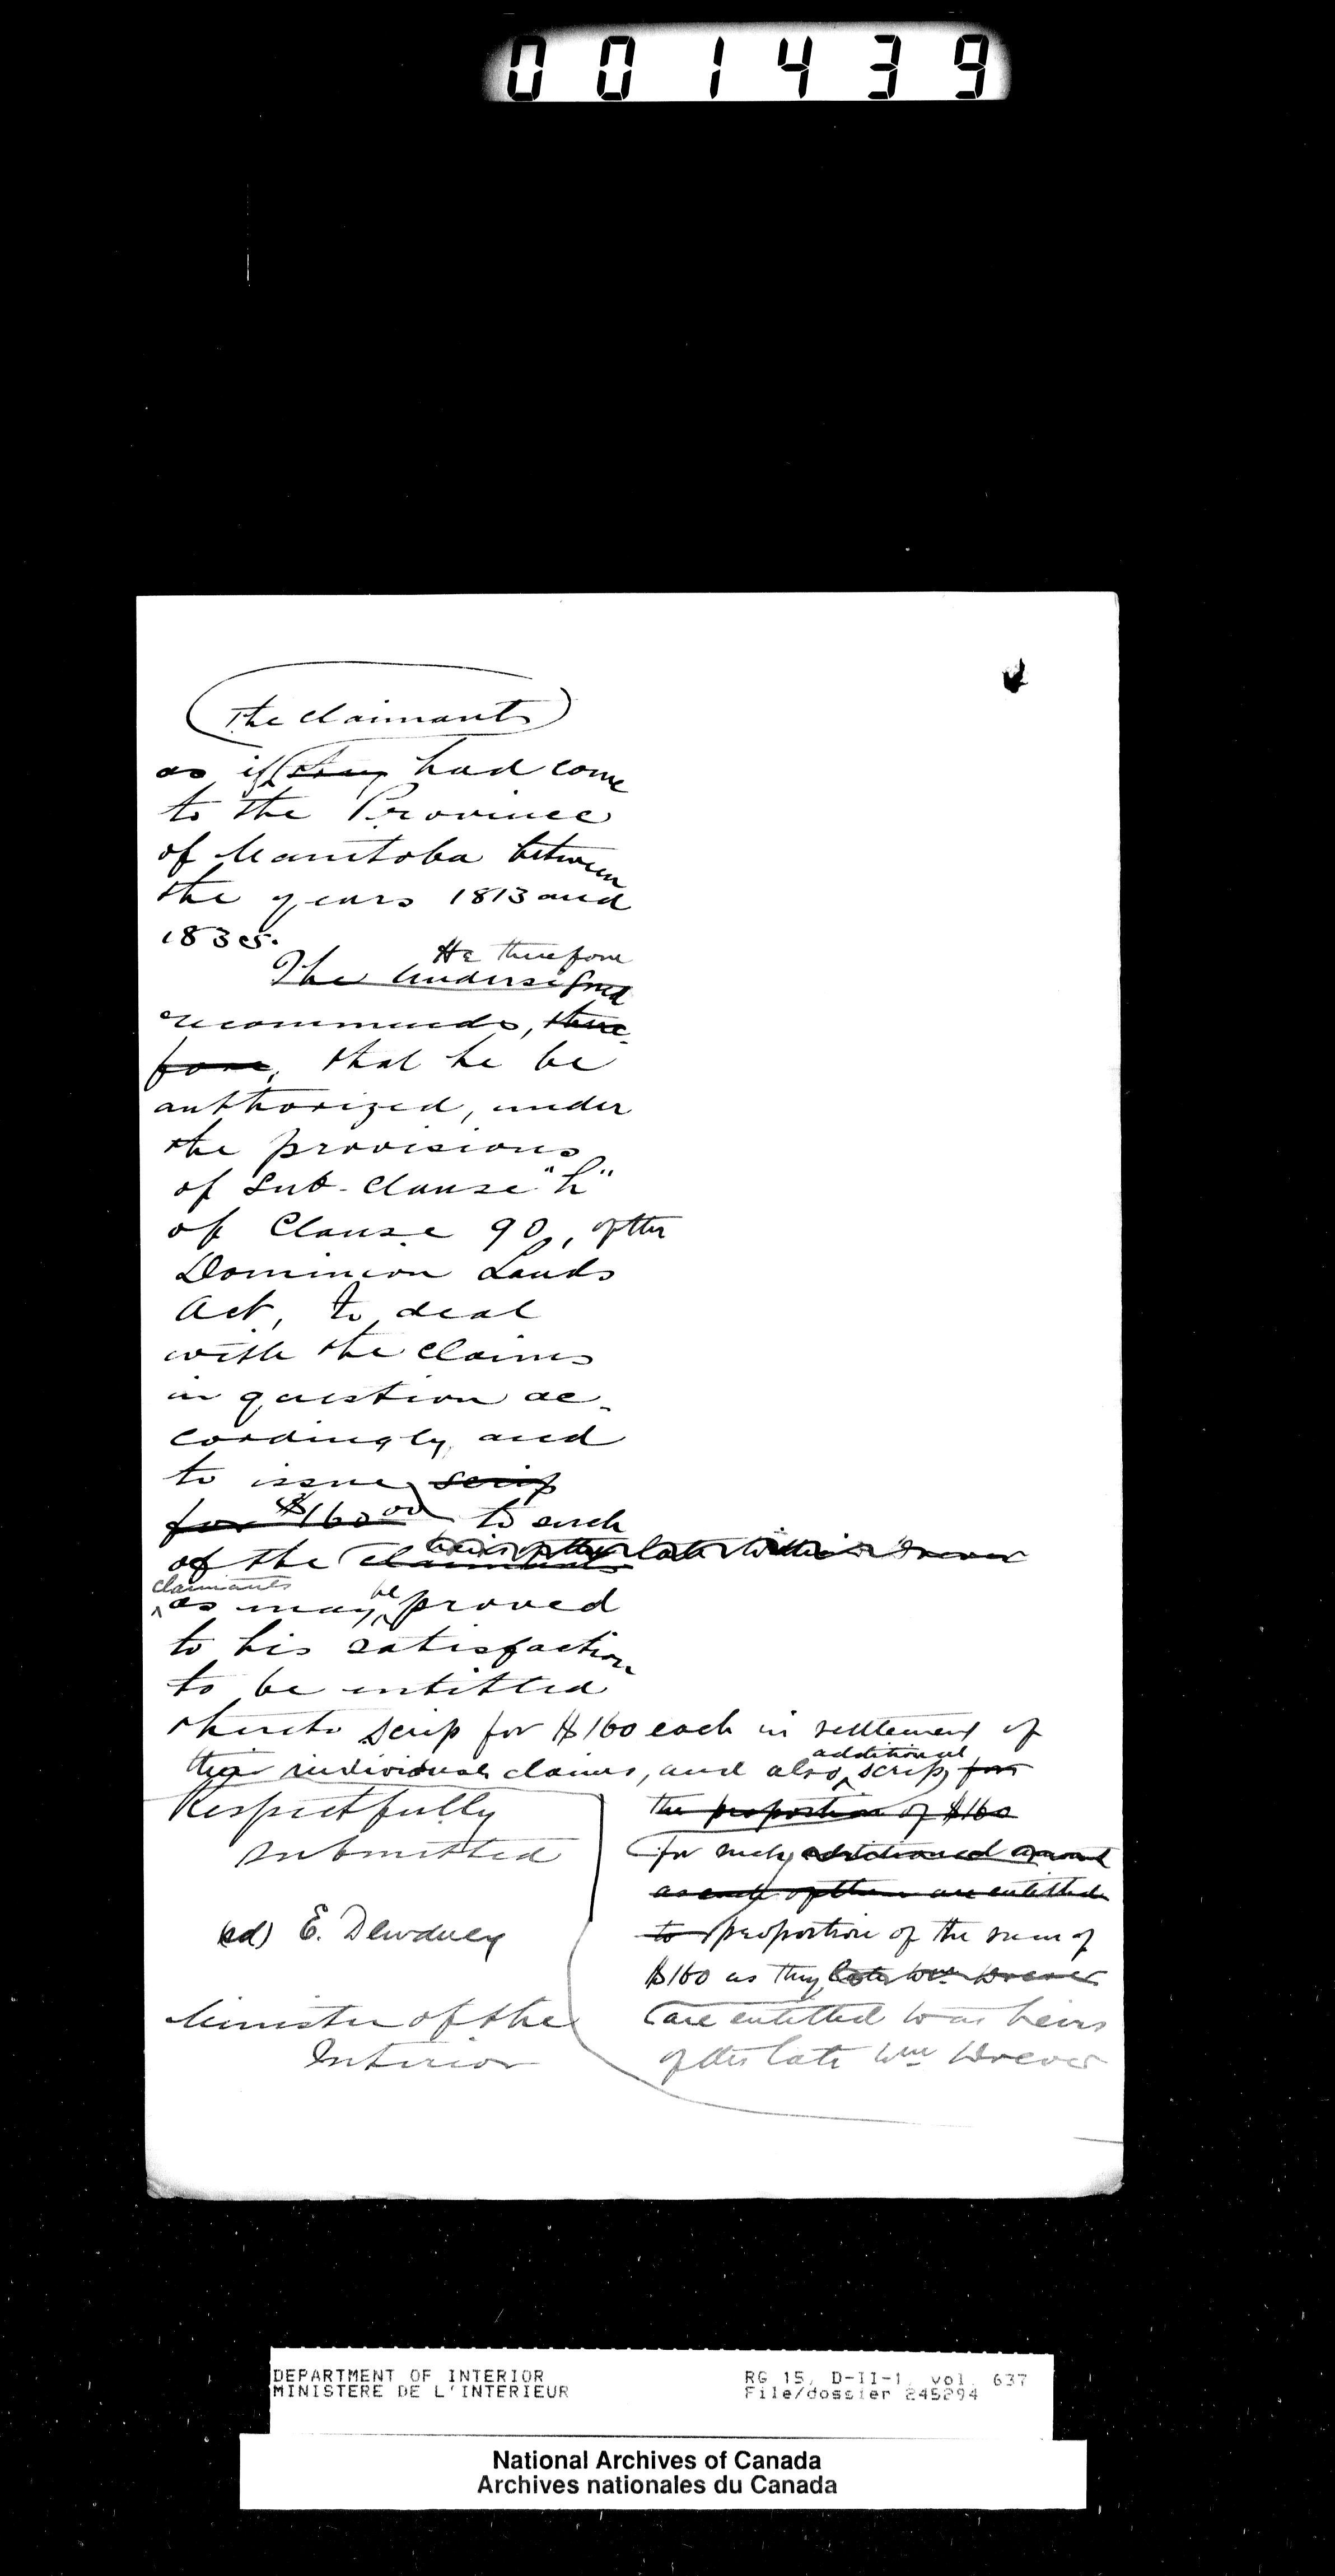 001439
The claimants
as if they had come
to the Province
of Manitoba between
the years 1813 and
1835.
He therefore
The undersigned
recommends, there-
fore, that he be
authorized, under
the provisions
of Sub-Clause "h"
of Clause 90, of the
Dominion Lands
Act, to deal
with the claims
in question ac-
cordingly, and
to issue scrip
for $160.00 to such
of the claimants heirs of the late William Drever
claimants
as may be proved
to his satisfaction
to be entitled
thereto scrip for $160 each in settlement of
additional
their individual claims, and also scrip for
the proportion of $160
for such additional amount
as each of them are entitled
to proportion of the sum of
$160 as they late Wm Drever
are entitled to as heirs
of the late Wm Drever
Respectfully
submitted
(sd) E. Dewdney
Minister of the
Interior
DEPARTMENT OF INTERIOR
MINISTERE DE L'INTERIEUR
RG 15, D-II-1, vol. 637
File/dossier 245294
National Archives of Canada
Archives nationales du Canada